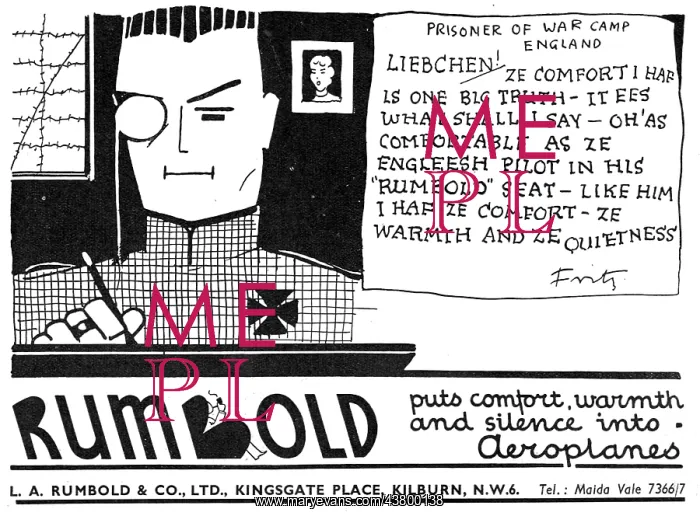 PRISONER OF WAR CAMP
ENGLAND
LIEBCHEN! ZE COMFORT I HAF
IS ONE BIG TRUTH - IT EES
WHAT SHALL I SAY - OH 'AS
COMFORTABLE AS ZE
ENGLEESH PILOT IN HIS
"RUMBOLD" SEAT - LIKE HIM
I HAF ZE COMFORT - ZE
WARMTH AND ZE QUIETNESS
Fritz
ME
PL
ME
PL
RUMBOLD
puts comfort, warmth
and silence into -
Aeroplanes
L. A. RUMBOLD & CO., LTD., KINGSGATE PLACE, KILBURN, N.W.6. Tel.: Maida Vale 7366/7
www.maryevans.com/43800138